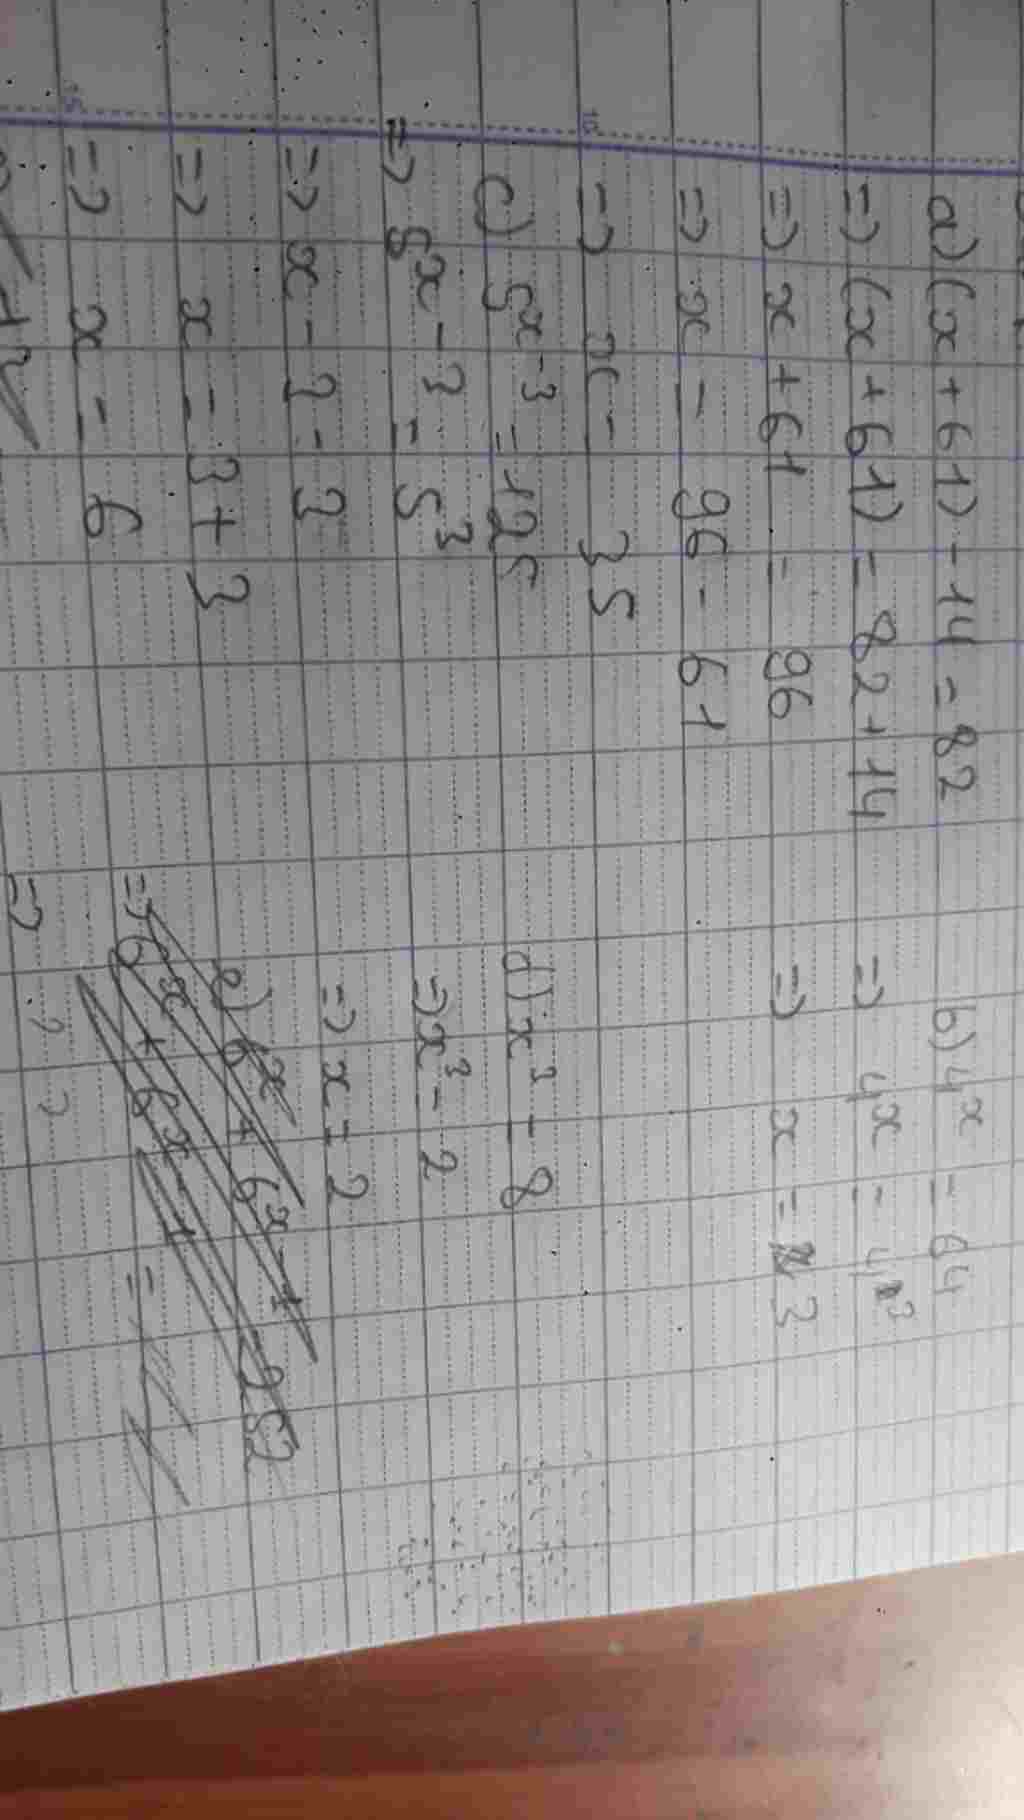 a) (x + 61) - 14 = 82
=> (x + 61) = 82 + 14
=> x + 61 = 96
=> x = 96 - 61
=> x = 35
b) 4^x = 64
=> 4^x = 4^3
=> x = 3
c) 5^x-3 = 125
=> 5^x-3 = 5^3
=> x - 3 = 3
=> x = 3 + 3
=> x = 6
d) x^3 = 8
=> x^3 = 2
=> x = 2
e) 6^x + 6^x-1 = 252
=> 6^x + 6^x-1 =
=>